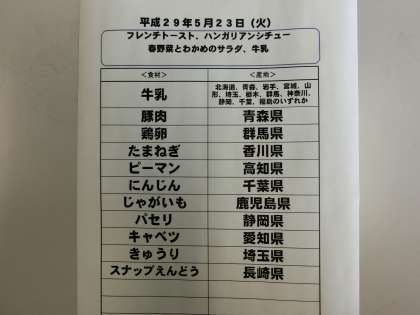 平成29年5月23日（火）
フレンチトースト、ハンガリアンシチュー
春野菜とわかめのサラダ、牛乳
＜食材＞ ＜産地＞
牛乳 北海道、青森、岩手、宮城、山
形、埼玉、栃木、群馬、神奈川、
静岡、千葉、福島のいずれか
豚肉 青森県
鶏卵 群馬県
たまねぎ 香川県
ピーマン 高知県
にんじん 千葉県
じゃがいも 鹿児島県
パセリ 静岡県
キャベツ 愛知県
きゅうり 埼玉県
スナップえんどう 長崎県